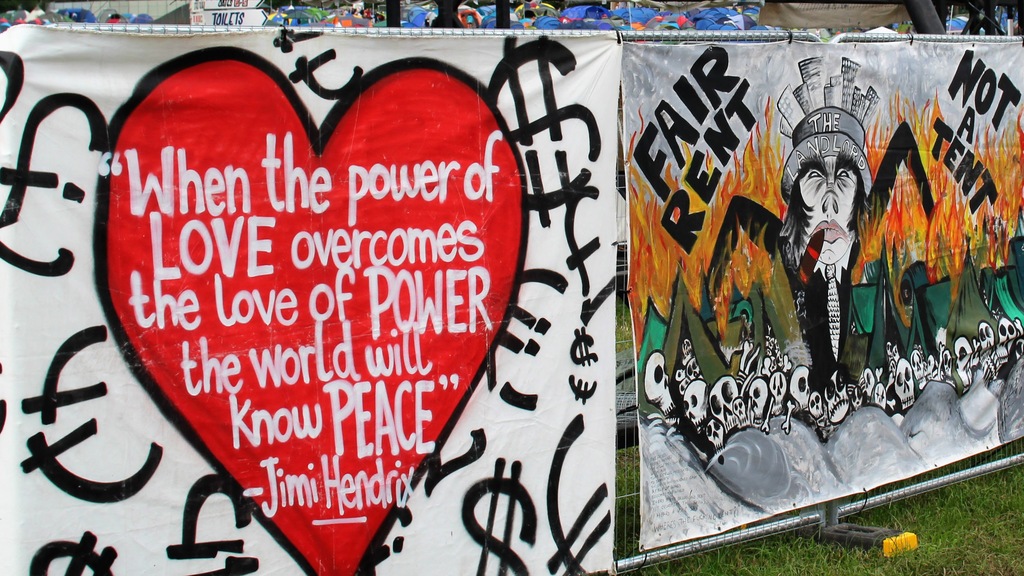 TOILETS
"When the power of
LOVE overcomes
the love of POWER
the world will
know PEACE"
-Jimi Hendrix
FAIR
RENT
THE
LANDLORD
NOT
A
TENT